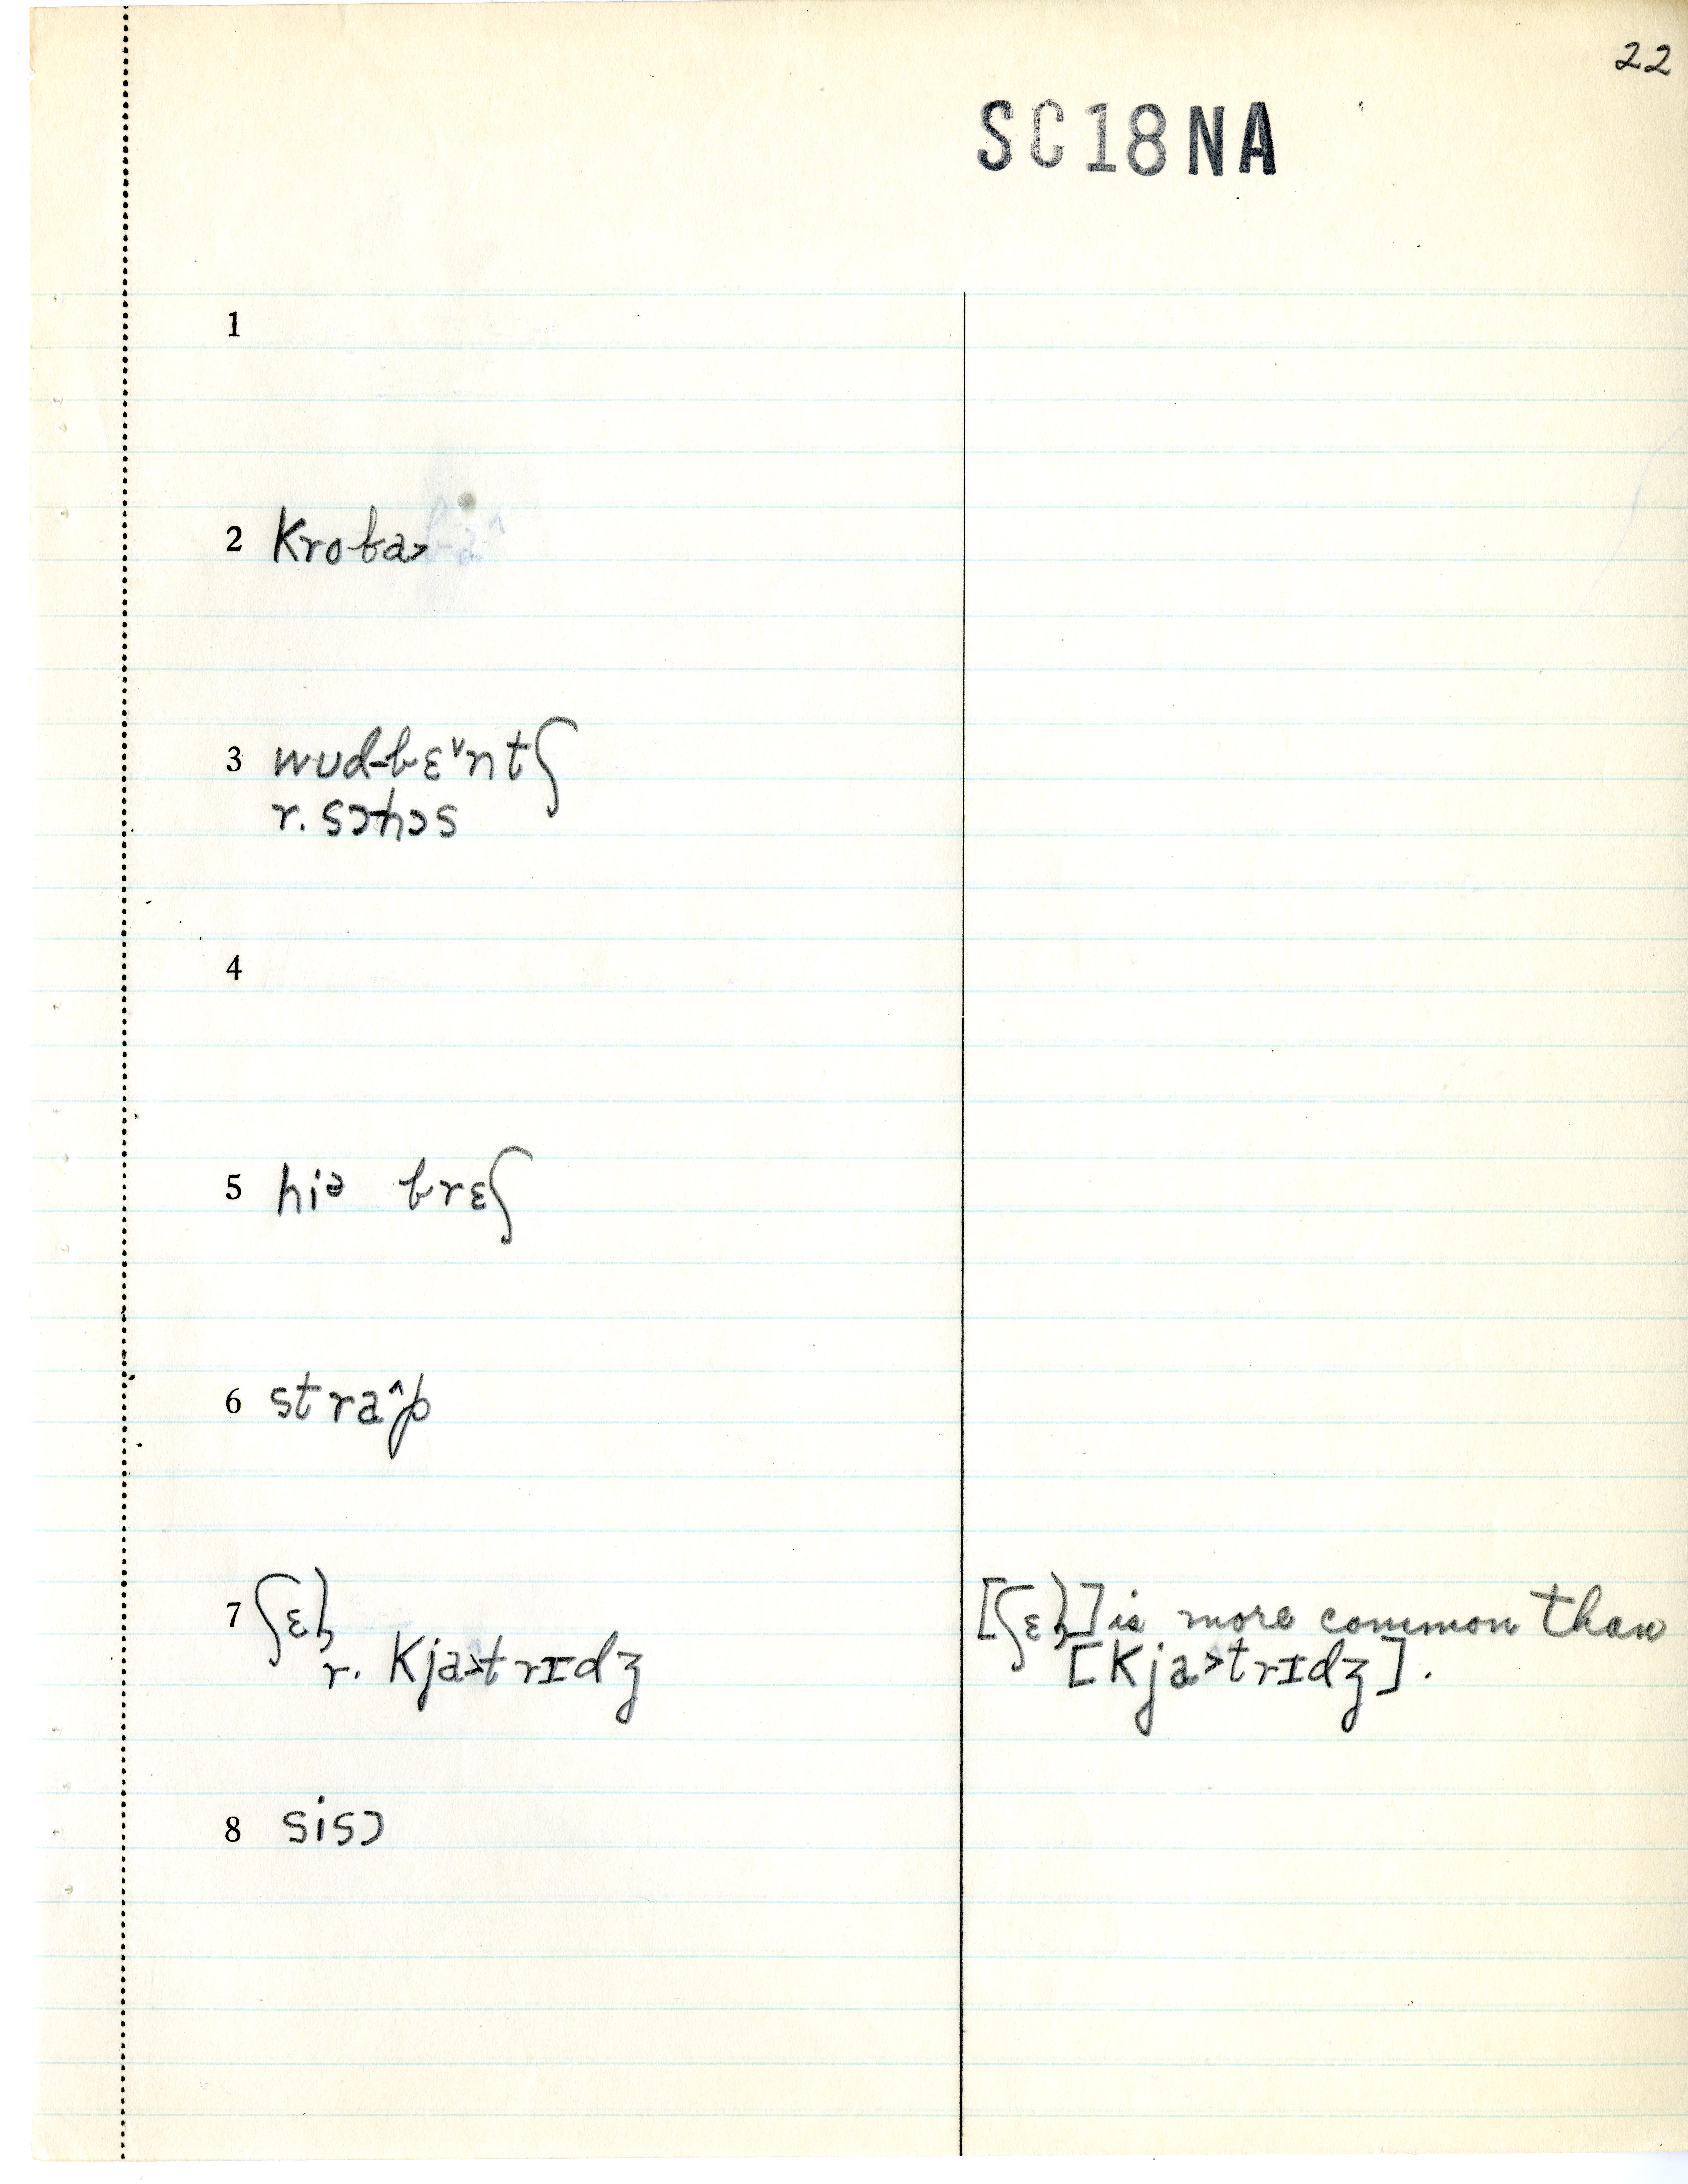 22
SC18NA
1
2 kroba˃
3 wud-bɛ˅ntʃ
r. sɔhɔs
4
5 hiə brɛʃ
6 stra˄p
7 ʃɛl
r. kja˃trɪdʒ
[ʃɛl] is more common than
[kja˃trɪdʒ].
8 sisɔ